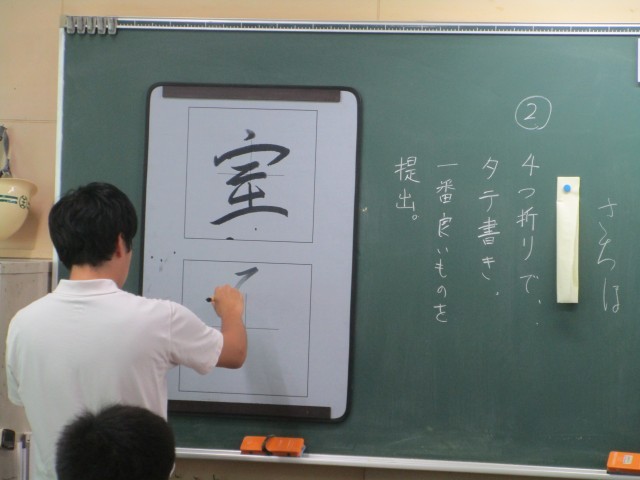 ②
4つ折りで、
タテ書き、
一番良いものを
提出。
室